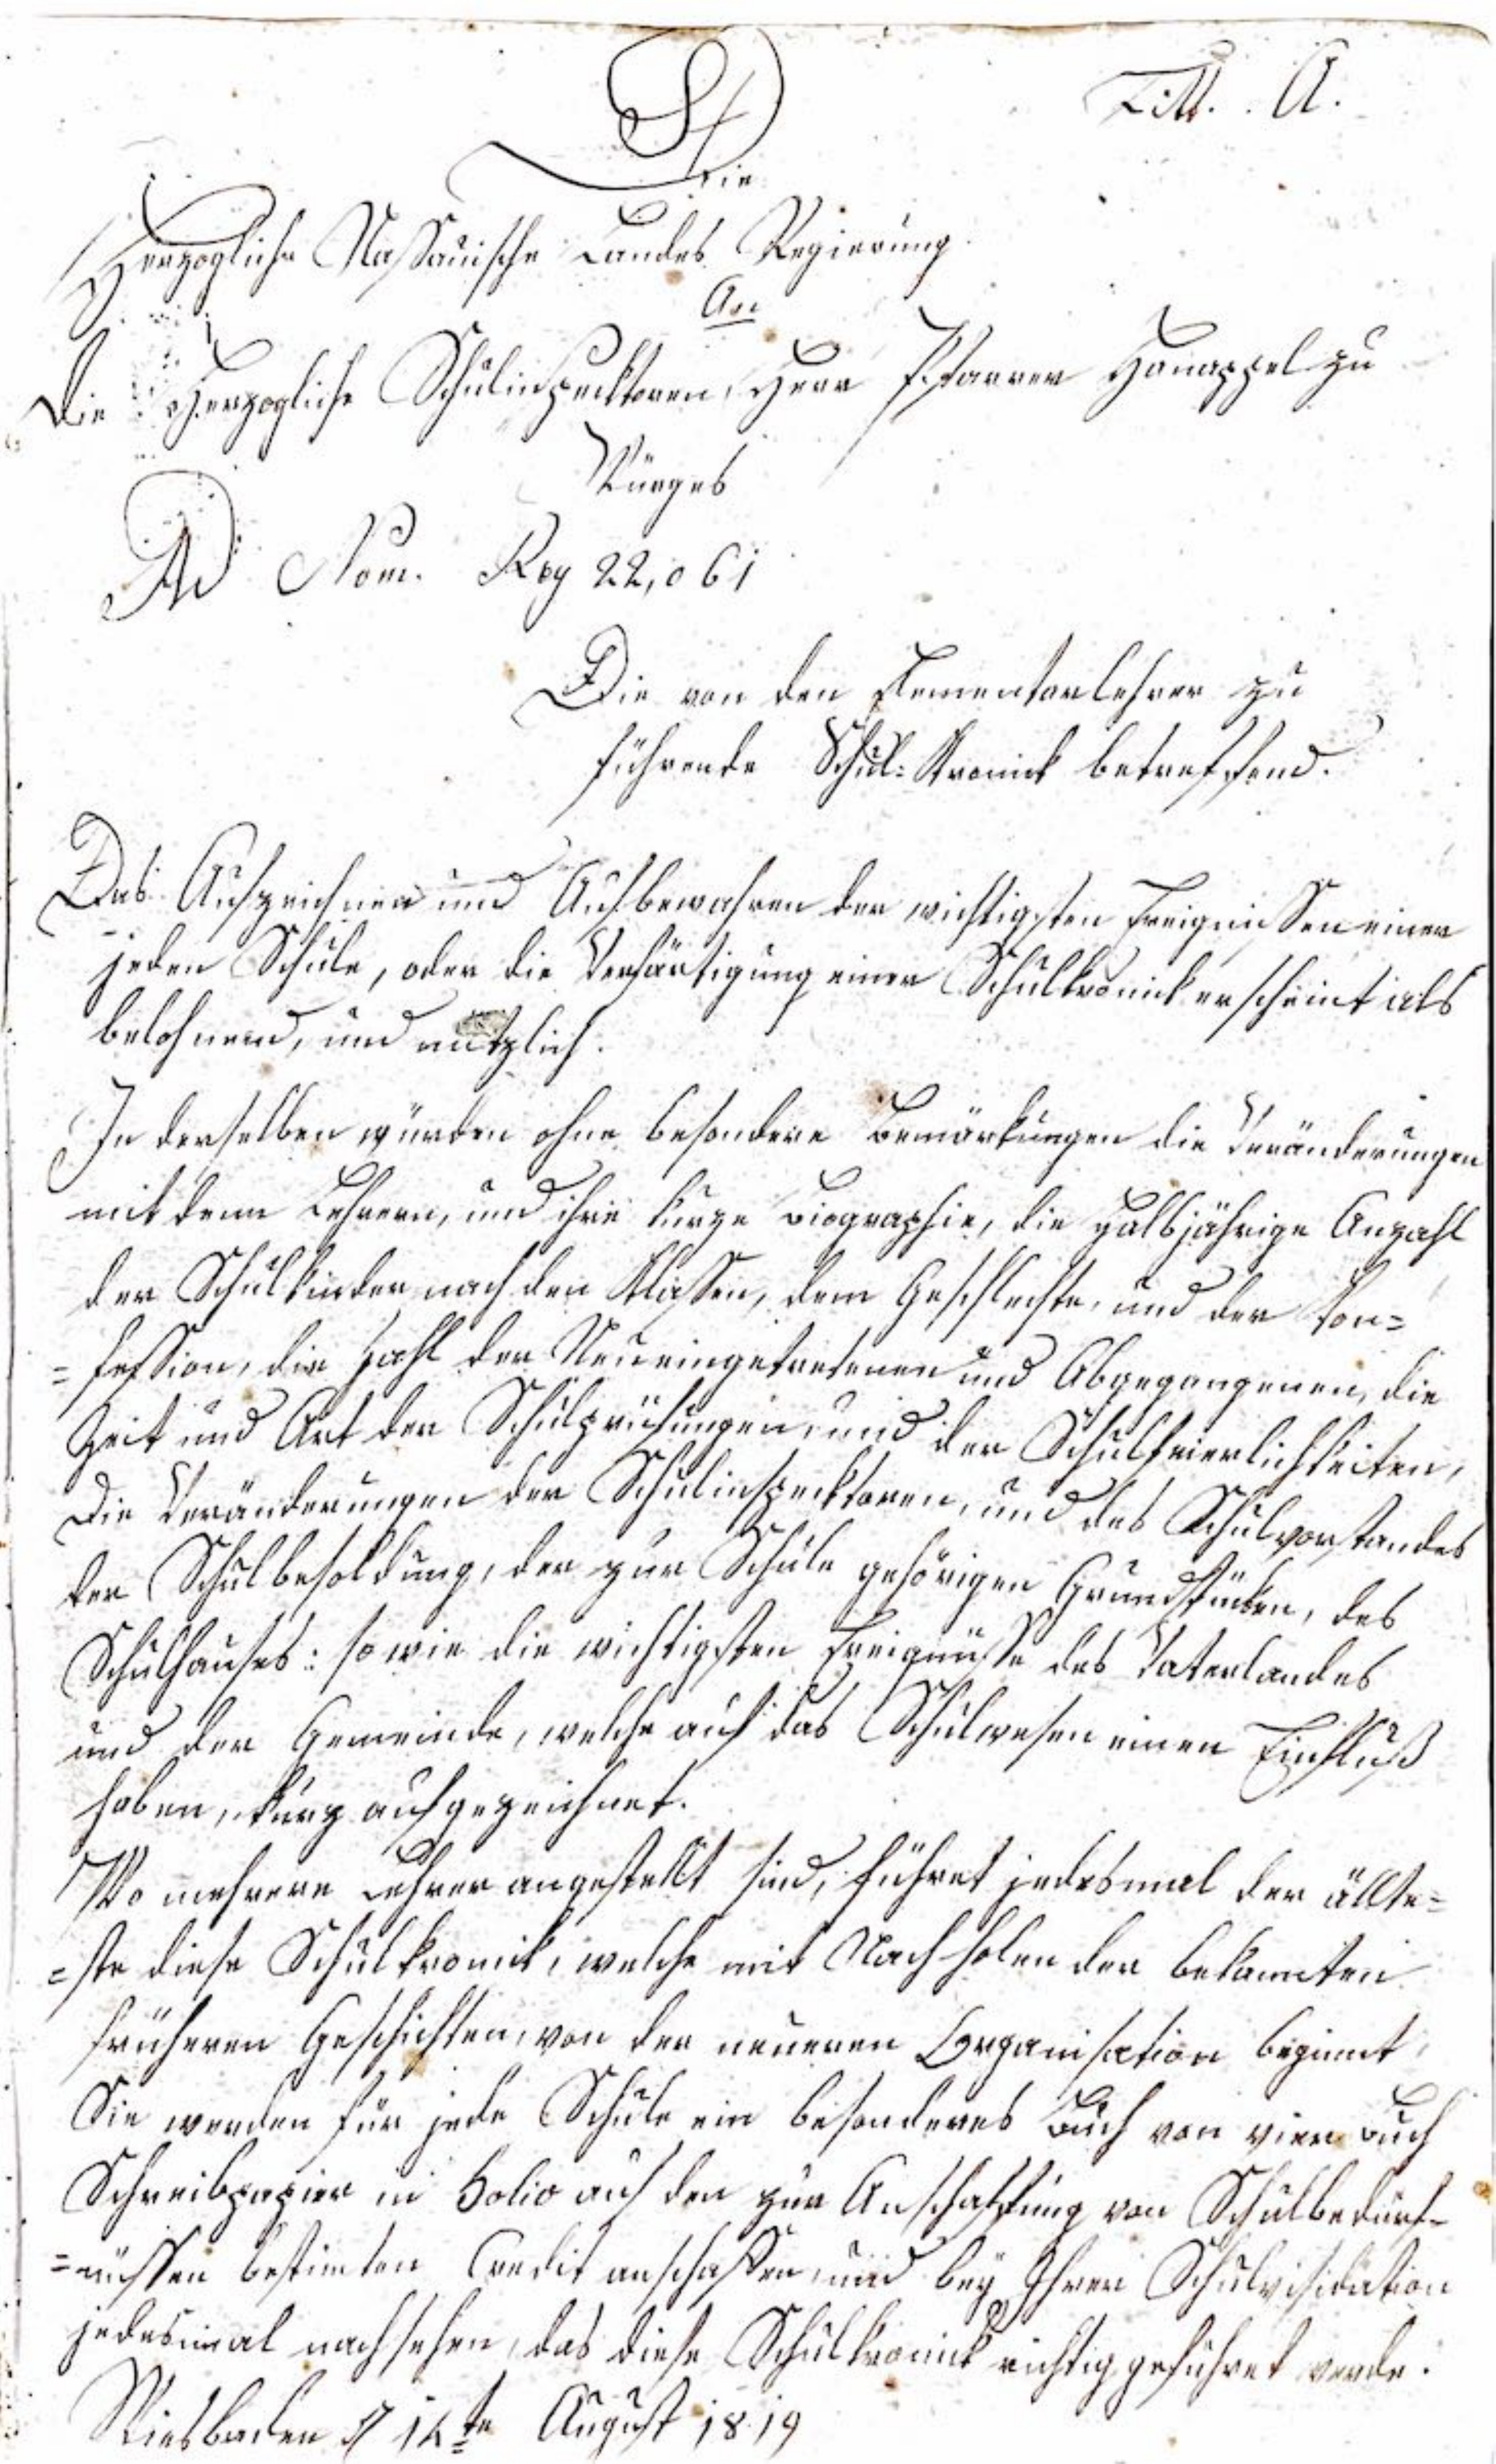 Litt. A.
Die
Herzogliche Nassauische Landes Regierung
An
Die Herzogliche Schulinspecktoren, Herr Pfarrer Hanappel zu
Würges
Ad Num. Reg 22,061
Die von den Elementarlehrer zu
führende Schul-Kronick betreffend.
Das Aufzeichnen und Aufbewahren der wichtigsten Ereignissen einer
jeden Schule, oder die Verfärtigung einer Schulkronick erscheint als
belohnend, und nützlich.
In derselben würden ohne besondere Bemärkungen die Veränderungen
mit denn Lehrern, und ihre kurze Biographie, die Halbjährige Anzahl
der Schulkinder nach den Klassen, dem Geschlechte, und der Kon=
=fession, die Zahl der Neueingetretenen und Abgegangenen, die
Zeit und Art der Schulprüfungen, und der Schulfeierlichkeiten,
Die Veränderungen der Schulinspecktoren, und des Schulvorstandes
der Schulbesoldung, der zur Schule gehörigen Grundstücken, des
Schulhauses: so wie die wichtigsten Ereignüsse des Vaterlandes
und der Gemeinde, welche auf das Schulwesen einen Einfluß
haben, kurz aufgezeichnet.
Wo mehrere Lehrer angestellt sind, führet jedesmal der ällte=
=ste diese Schulkronik, welche mit Nachholen der bekannten
früheren Geschichten, von der neueren Organisation beginnt,
Sie werden für jede Schule ein besonderes Buch von vier Buch
Schreibpapier in Folio auf den zur Anschaffung von Schulbedürf=
=nüssen bestimten Credit anschaffen, und bey Ihrer Schulvisidation
jedesmal nachsehen, das diese Schulkronick richtig geführet werde.
Wiesbaden d 14te August 1819